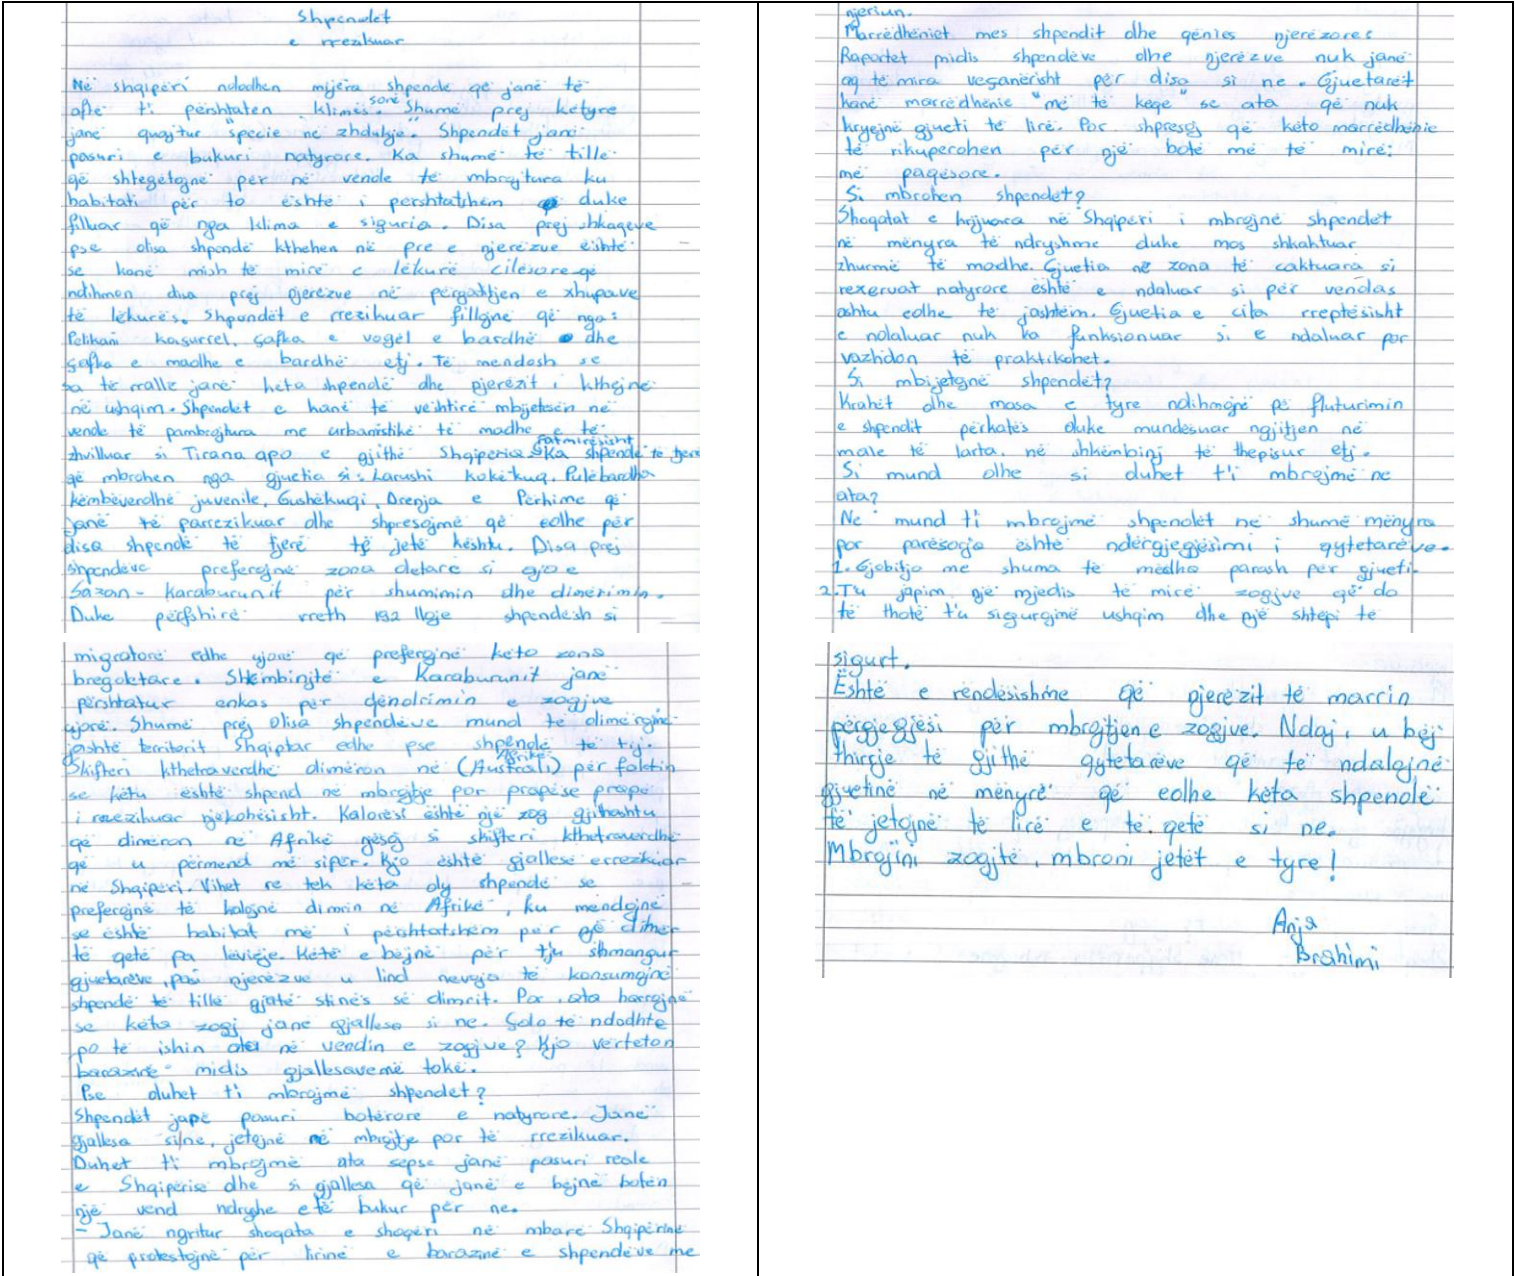 Shpendet
e rrezikuar
Në shqipëri ndodhen mijëra shpende që janë të
aftë t'i përshtaten klimës sonë. Shumë prej këtyre
janë quajtur "specie në zhdukje. Shpendët janë
pasuri e bukuri natyrore. Ka shumë të tillë
që shtegëtojnë për në vende të mbrojtura ku
habitati për to është i përshtatshëm duke
filluar që nga klima e siguria. Disa prej shkaqeve
pse disa shpendë kthehen në pre e njerëzve është
se kanë mish të mirë e lëkurë cilësore që
ndihmon disa prej njerëzve në përgatitjen e xhupave
të lëkurës. Shpendët e rrezikuar fillojnë që nga:
Pelikani kaçurrel, çafka e vogël e bardhë dhe
çafka e madhe e bardhë etj. Të mendosh se
sa të rralle janë këta shpendë dhe njerëzit i kthejnë
në ushqim. Shpendët e kanë të vështirë mbijetesën në
vende të pambrojtura me urbanistikë të madhe e të
zhvilluar si Tirana apo e gjithë Shqipëria. Fatmirësisht ka shpende të tjerë
që mbrohen nga gjuetia si: Larushi kokëkuq, Pulëbardha
këmbëverdhë juvenile, Gushëkuqi, Drenja e Përhime që
janë të parrezikuar dhe shpresojmë që edhe për
disa shpendë të tjerë të jetë kështu. Disa prej
shpendëve preferojnë zona detare si ajo e
Sazan-Karaburunit për shumimin dhe dimërimin.
Duke përfshirë rreth 192 lloje shpendësh si
migratorë edhe ujorë që preferojnë këto zona
bregdetare. Shkëmbinjtë e Karaburunit janë
përshtatur enkas për qëndrimin e zogjve
ujorë. Shumë prej disa shpendëve mund të dimërojnë
jashtë territorit Shqiptar edhe pse shpendë të tij.
Skifteri kthetraverdhë dimëron në (Australi) Afrikë për faktin
se këtu është shpend në mbrojtje por prapëse prapë
i rrezikuar njëkohësisht. Kalorësi është një zog gjithashtu
që dimëron në Afrikë njësoj si skifteri kthetraverdhë
që u përmend më sipër. Kjo është gjallesë e rrezikuar
në Shqipëri. Vihet re tek këta dy shpendë se
preferojnë të kalojnë dimrin në Afrikë, ku mendojnë
se është habitat më i përshtatshëm për një dimër
të qetë pa lëvizje. Këtë e bëjnë për t'ju shmangur
gjuetarëve, pasi njerëzve u lind nevoja të konsumojnë
shpendë të tillë gjatë stinës së dimrit. Por ata harrojnë
se këta zogj janë gjallesa si ne. Çdo të ndodhte
po të ishin ata në vendin e zogjve? Kjo vërteton
barazinë midis gjallesave më tokë.
Pse duhet t'i mbrojmë shpendët?
Shpendët janë pasuri botërore e natyrore. Janë
gjallesa si ne, jetojnë në mbrojtje por të rrezikuar.
Duhet t'i mbrojmë ata sepse janë pasuri reale
e Shqipërisë dhe si gjallesa që janë e bëjnë botën
një vend ndryshe e të bukur për ne.
- Janë ngritur shoqata e shoqëri në mbarë Shqipërinë
që protestojnë për lirinë e barazinë e shpendëve me
njeriun.
Marrëdhëniet mes shpendit dhe qënies njerëzores
Raportet midis shpendëve dhe njerëzve nuk janë
aq të mira veçanërisht për disa si ne. Gjuetarët
kanë marrëdhënie "më të keqe" se ata që nuk
kryejnë gjueti të lirë. Por shpresoj që këto marrëdhënie
të rikuperohen për një botë më të mirë;
më paqësore.
Si mbrohen shpendët?
Shoqatat e krijuara në Shqipëri i mbrojnë shpendët
në mënyra të ndryshme duke mos shkaktuar
zhurmë të madhe. Gjuetia në zona të caktuara si
rezervat natyrore është e ndaluar si për vendas
ashtu edhe të jashtëm. Gjuetia e cila rreptësisht
e ndaluar nuk ka funksionuar si e ndaluar por
vazhdon të praktikohet.
Si mbijetojnë shpendët?
Krahët dhe masa e tyre ndihmojnë në fluturimin
e shpendit përkatës duke mundësuar ngjitjen në
male të larta, në shkëmbinj të thepisur etj.
Si mund dhe si duhet t'i mbrojmë ne
ata?
Ne mund t'i mbrojmë shpendët në shumë mënyra
por parësorja është ndërgjegjësimi i qytetarëve.
1. Gjobitja me shuma të mëdha parash për gjueti.
2. T'u japim një mjedis të mirë zogjve që do
të thotë t'u sigurojmë ushqim dhe një shtëpi të
sigurt.
Është e rëndësishme që njerëzit të marrin
përgjegjësi për mbrojtjen e zogjve. Ndaj, u bëj
thirrje të gjithë qytetarëve që të ndalojnë
gjuetinë në mënyrë që edhe këta shpendë
të jetojnë të lirë e të qetë si ne.
Mbrojini zogjtë, mbroni jetët e tyre!
Anja
Brahimi